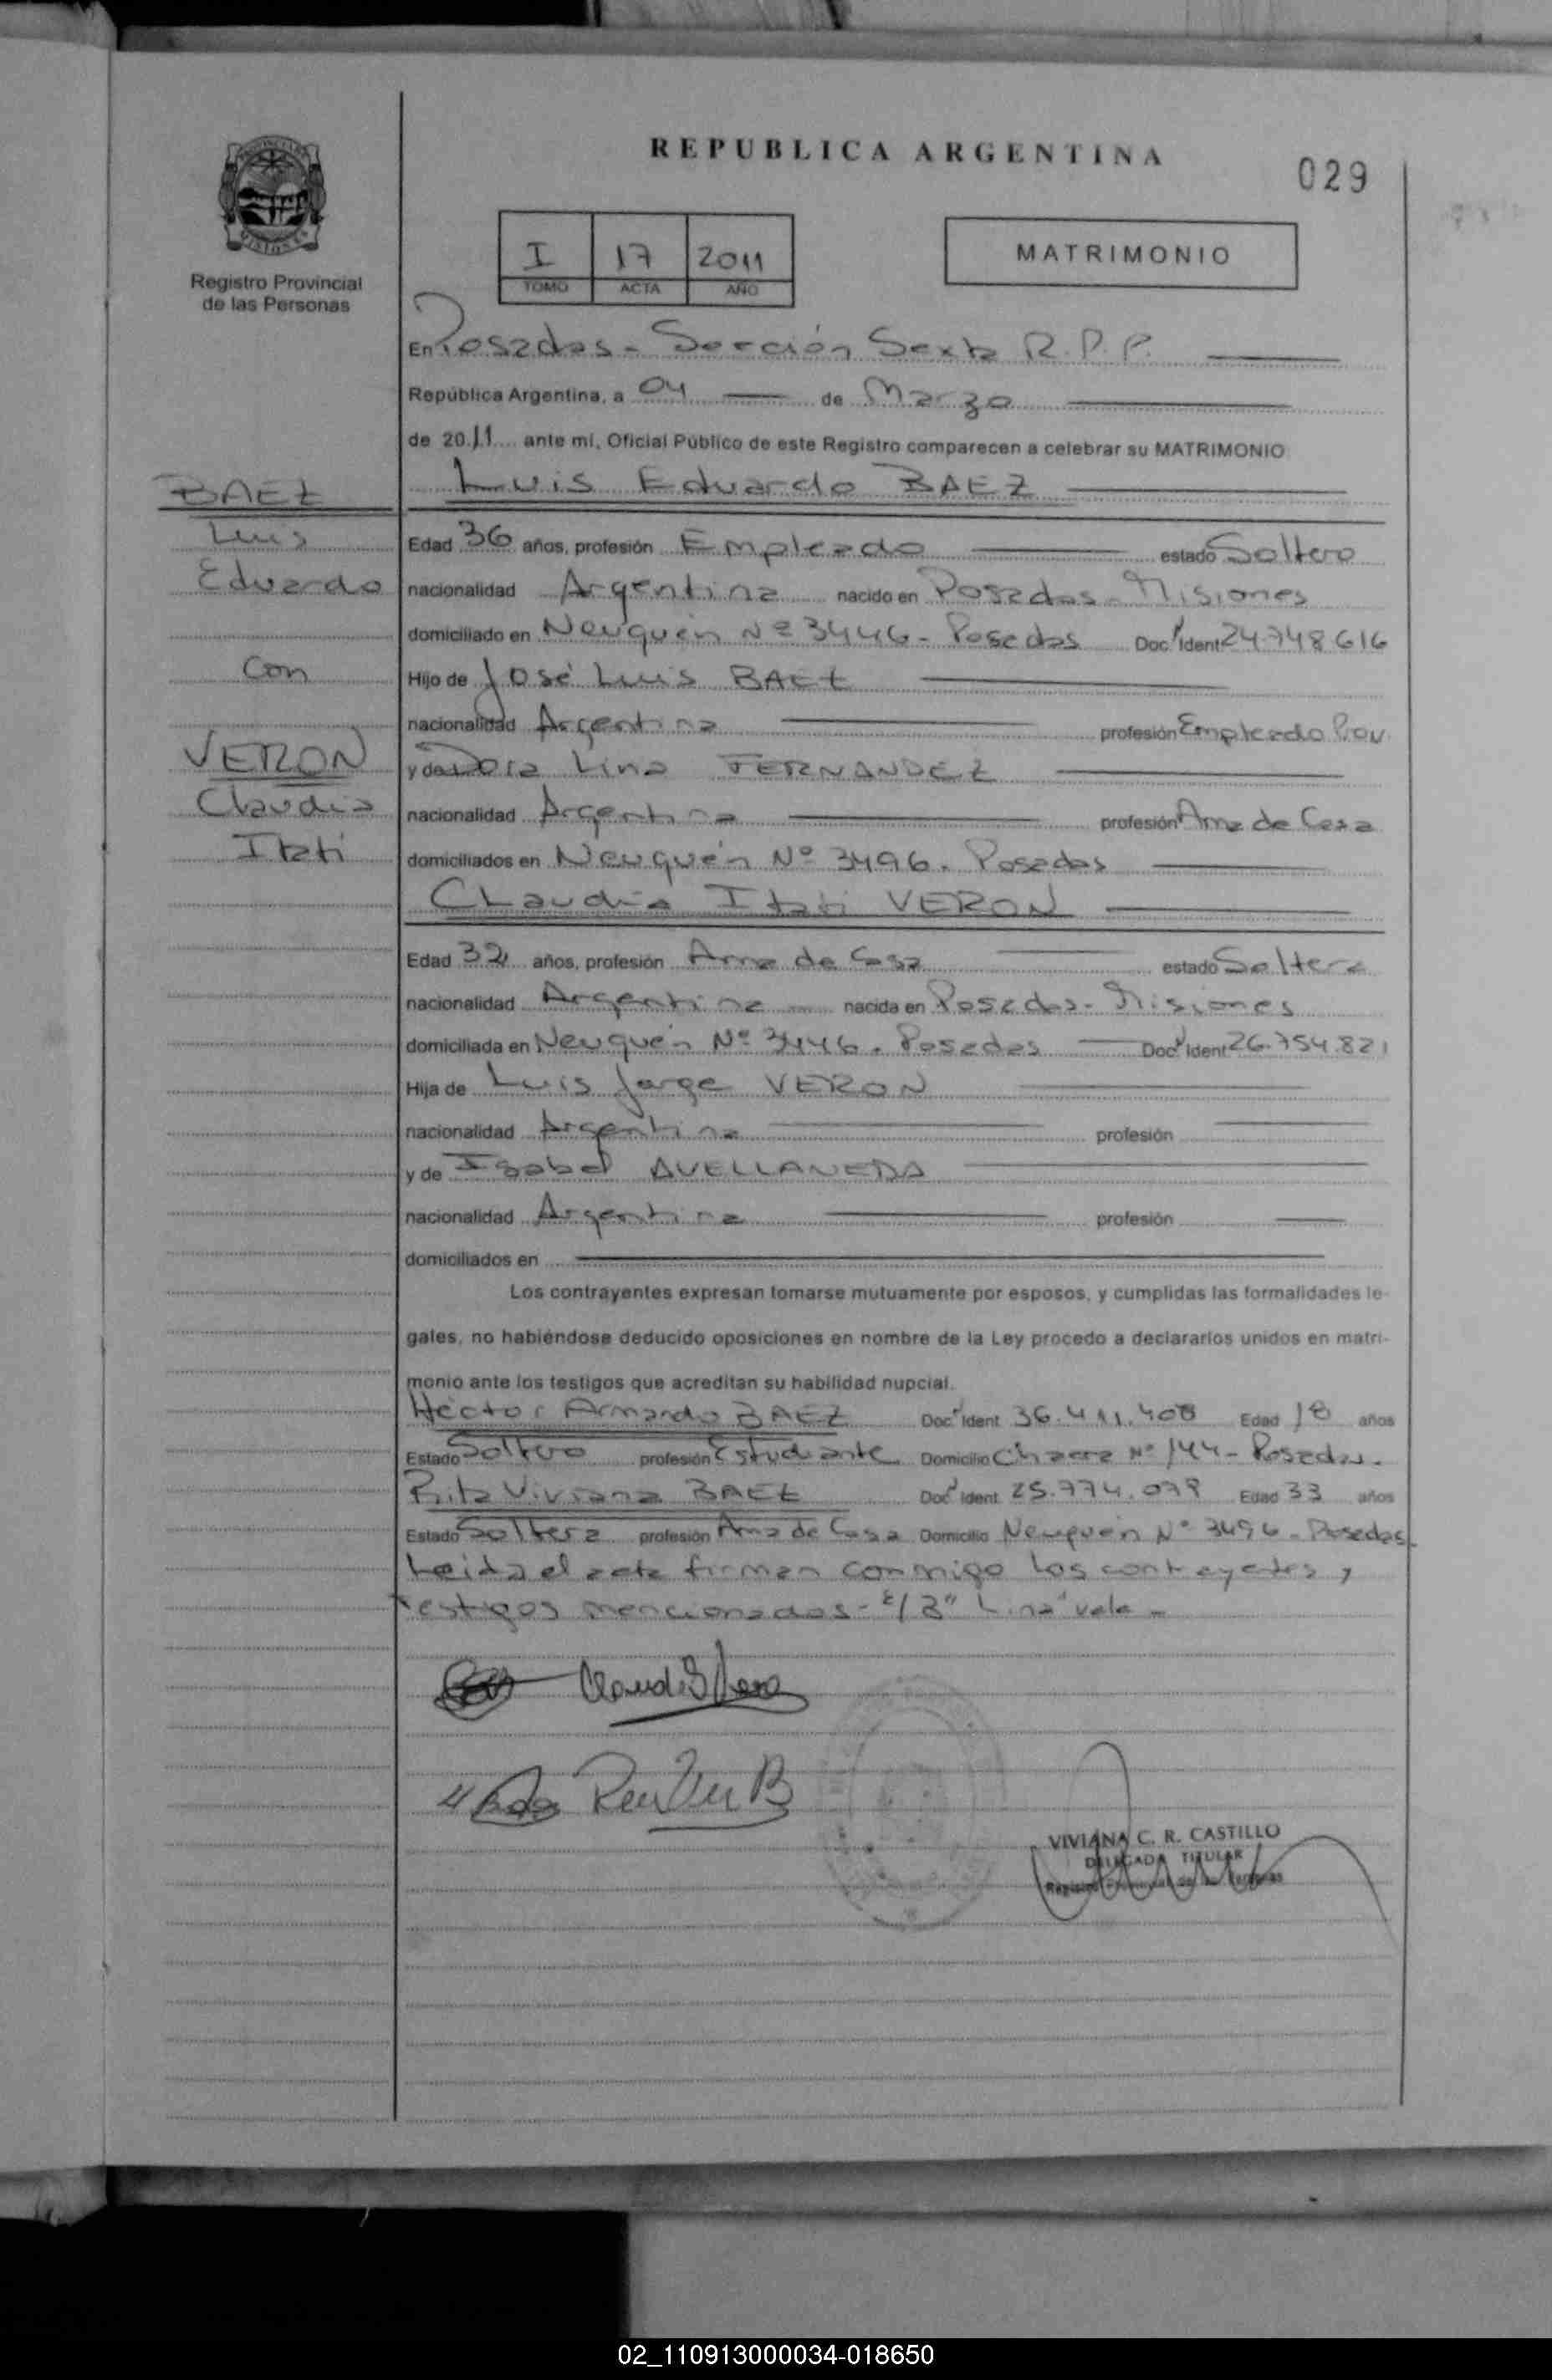 REPUBLICA ARGENTINA
029
I 17 2011
TOMO ACTA AÑO
MATRIMONIO
Registro Provincial
de las Personas
En Posadas - Sección Sexta R.P.P.
República Argentina, a 04 de Marzo
de 2011 ante mí, Oficial Público de este Registro comparecen a celebrar su MATRIMONIO
Luis Eduardo BAEZ
BAEZ
Luis
Eduardo
con
VERON
Claudia
Itati
Edad 36 años, profesión Empleado estado Soltero
nacionalidad Argentina nacido en Posadas - Misiones
domiciliado en Neuquén Nº 3446 - Posadas Doc. Ident 24.748.616
Hijo de José Luis BAEZ
nacionalidad Argentina profesión Empleado
y de Dora Lina FERNANDEZ
nacionalidad Argentina profesión Ama de Casa
domiciliados en Neuquén Nº 3496. Posadas
Claudia Itati VERON
Edad 32 años, profesión Ama de Casa estado Soltera
nacionalidad Argentina nacida en Posadas - Misiones
domiciliada en Neuquén Nº 3446. Posadas Doc. Ident 26.754.821
Hija de Luis Jorge VERON
nacionalidad Argentina profesión
y de Isabel AVELLANEDA
nacionalidad Argentina profesión
domiciliados en
Los contrayentes expresan tomarse mutuamente por esposos, y cumplidas las formalidades le-
gales, no habiéndose deducido oposiciones en nombre de la Ley procedo a declararlos unidos en matri-
monio ante los testigos que acreditan su habilidad nupcial.
Héctor Armando BAEZ Doc. Ident 36.411.408 Edad 18 años
Estado Soltero profesión Estudiante Domicilio Chacra Nº 144 - Posadas.
Rita Viviana BAEZ Doc. Ident 25.774.079 Edad 33 años
Estado Soltera profesión Ama de Casa Domicilio Neuquén Nº 3496 - Posadas.
Leida el acta firman conmigo los contrayentes y
testigos mencionados - "Lina" vale -
VIVIANA C. R. CASTILLO
DELEGADA TITULAR
Registro Provincial de las Personas
02_110913000034-018650